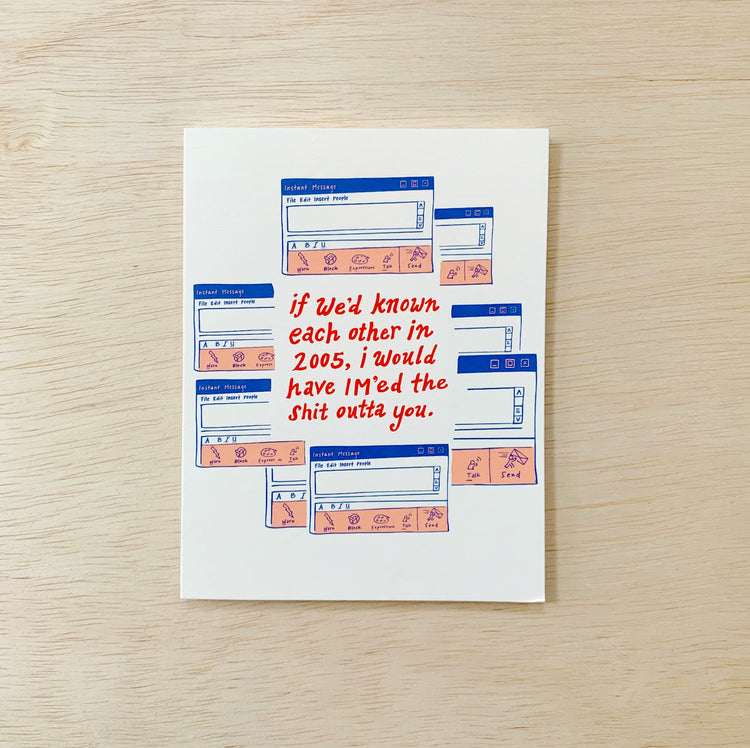 Instant Message
File Edit Insert People
A B I U
Warn Block Expressions Talk Send
Instant Message
File Edit Insert People
A B I U
Warn Block Express
if We'd known
each other in
2005, i would
have IM'ed the
shit outta you.
Instant Message
File Edit Insert People
A B I U
Warn Block Express Talk
Talk Send
Instant Message
File Edit Insert People
A B I U
Warn Block Expressions Talk Send
A B I
Warn